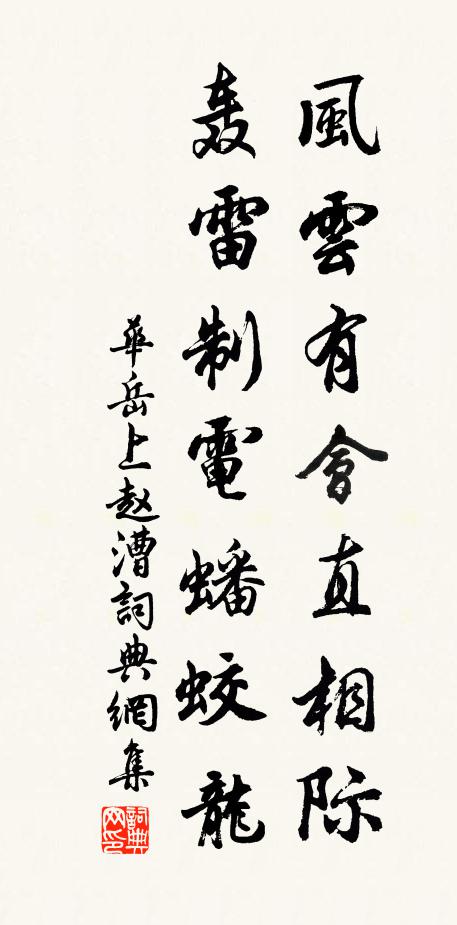 風雲有會直相际
轰雷制電蟠蛟龍
華岳上赵漕詞典網集
詞典网印